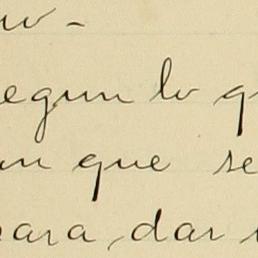 egun lo q
an que se
para, dar